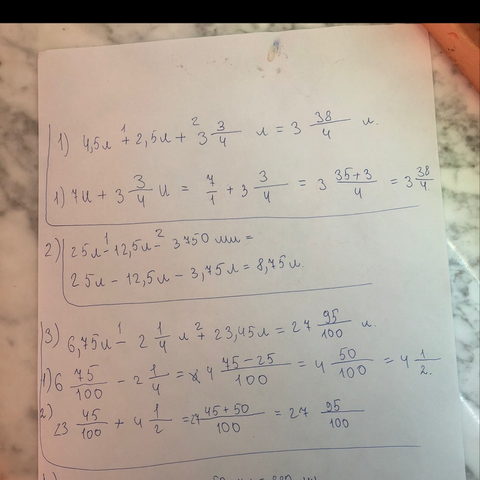 1) 4,5л +¹ 2,5л +² 3 3/4 л = 3 38/4 л.
1) 7л + 3 3/4 л = 7/1 + 3 3/4 = 3 35+3/4 = 3 38/4
2) 25л -¹ 12,5л -² 3750 мл =
25л - 12,5л - 3,75л = 8,75л.
3) 6,75л -¹ 2 1/4 л +² 23,45л = 27 95/100 л.
1) 6 75/100 - 2 1/4 = 4 75-25/100 = 4 50/100 = 4 1/2.
2) 23 45/100 + 4 1/2 = 27 45+50/100 = 27 95/100